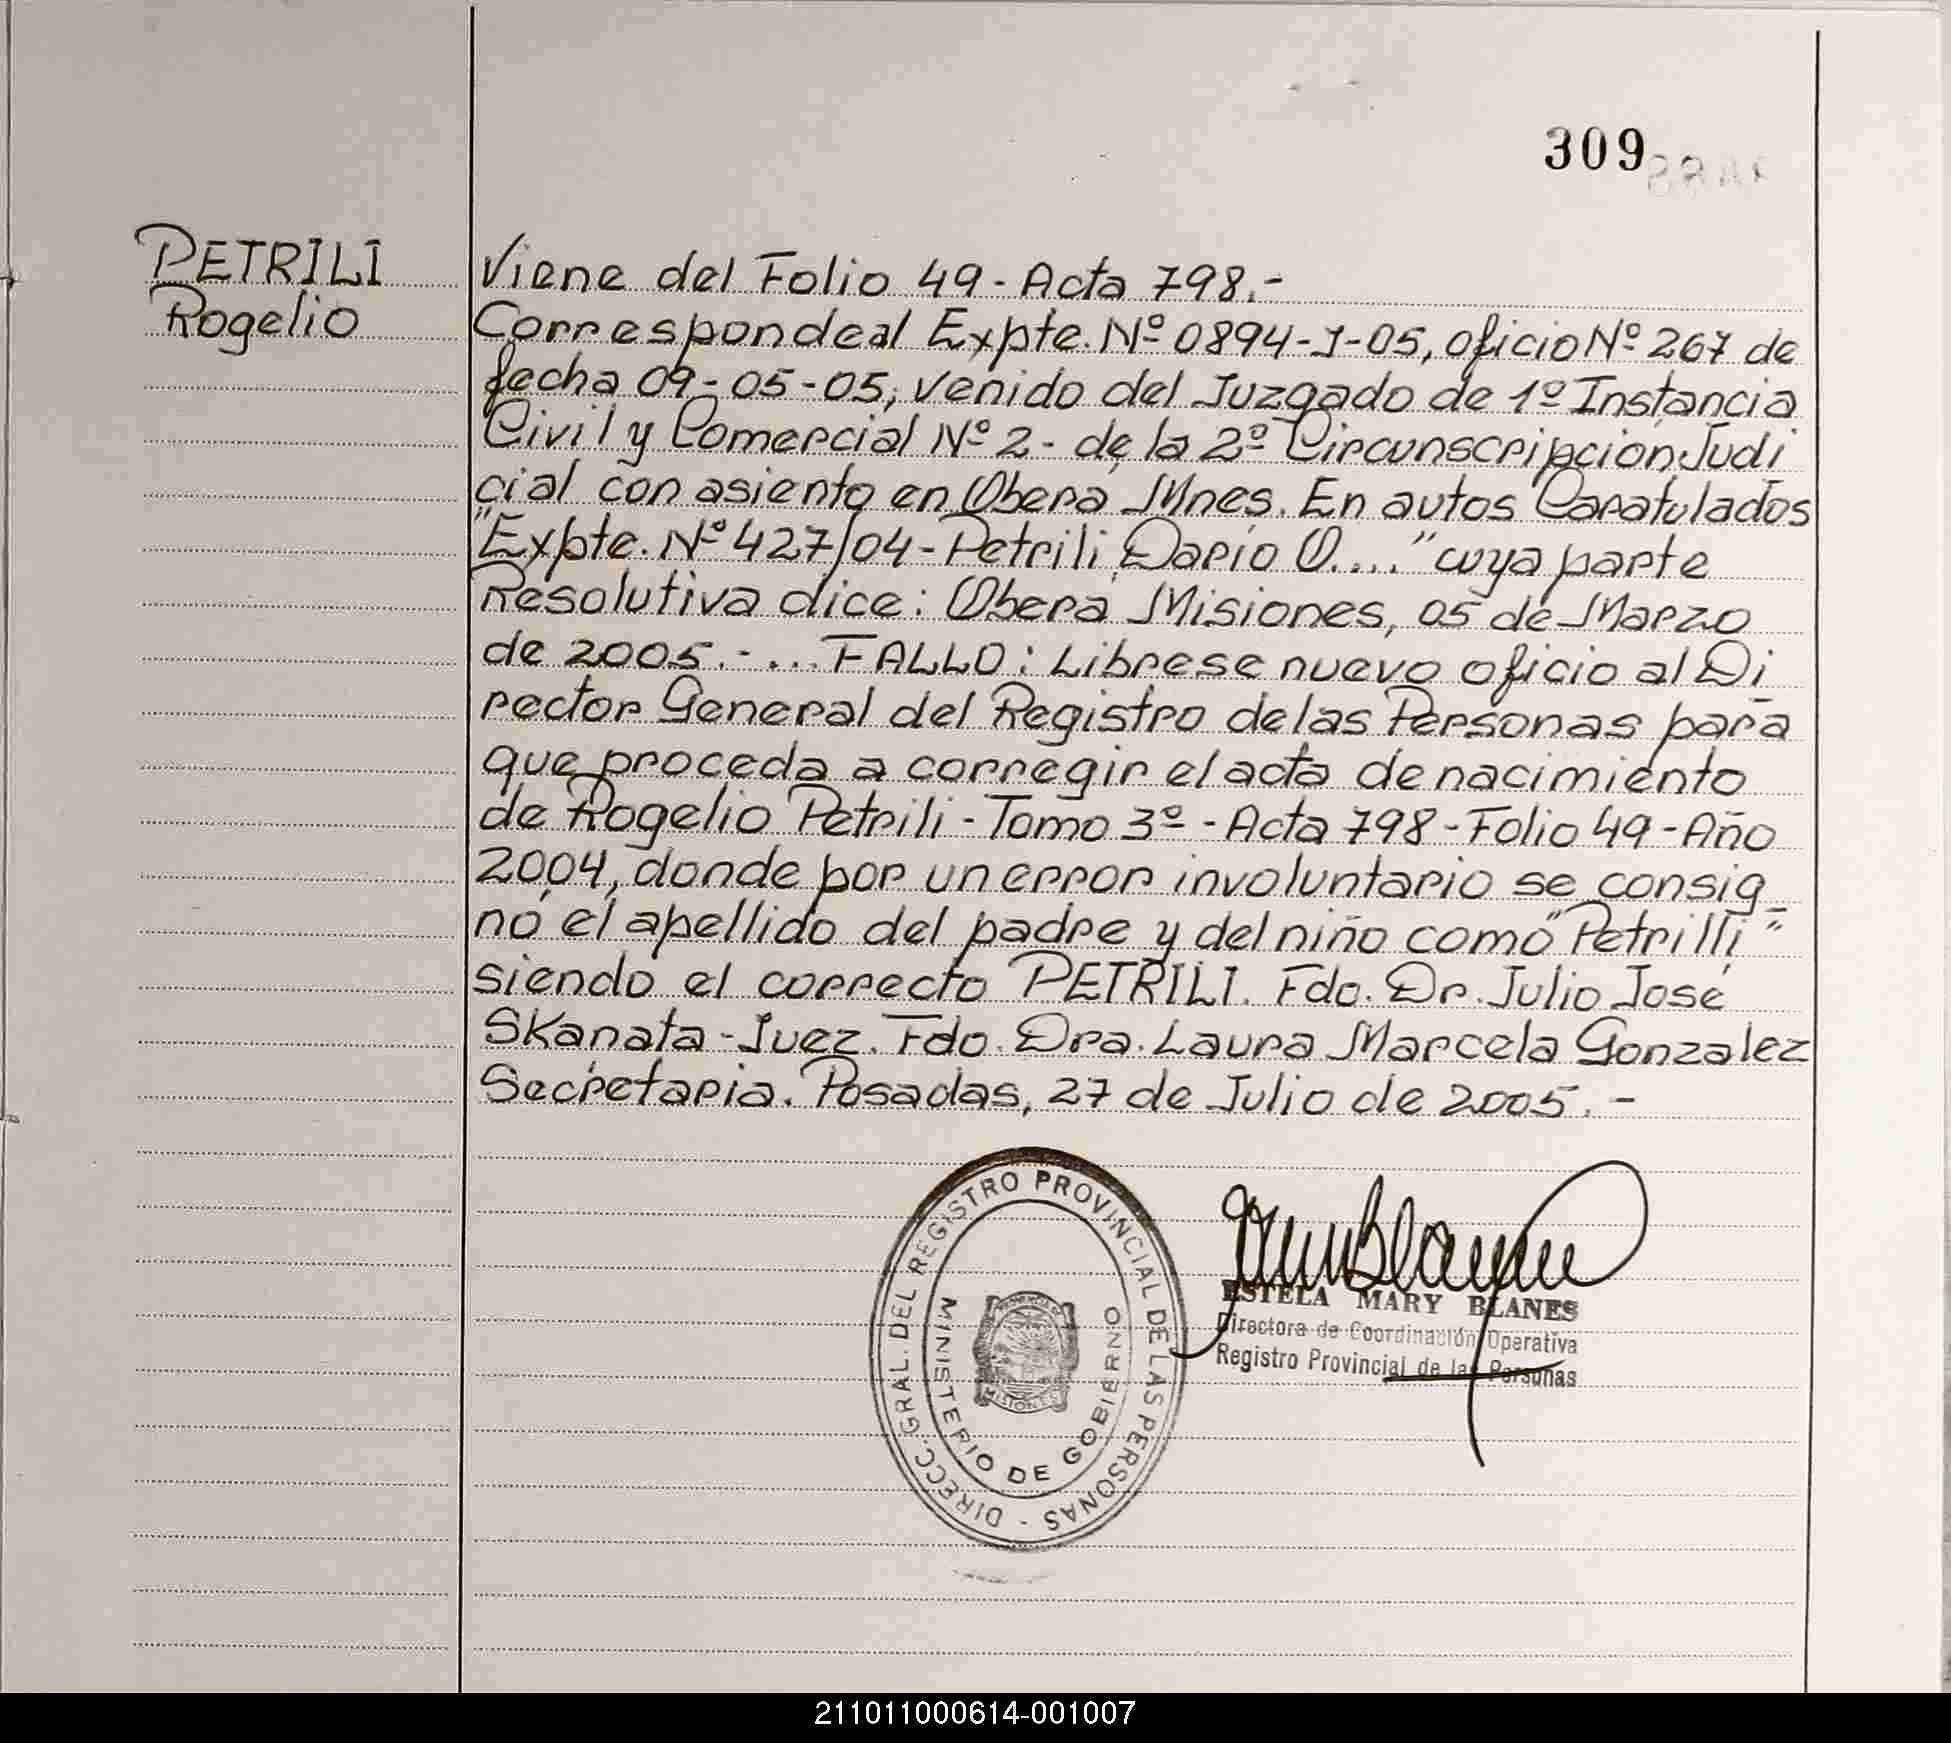 309
PETRILI
Rogelio
Viene del Folio 49 - Acta 798.-
Corresponde al Expte. Nº 0894-J-05, oficio Nº 267 de
fecha 09-05-05, venido del Juzgado de 1º Instancia
Civil y Comercial Nº 2 - de la 2º Circunscripción Judi
cial con asiento en Oberá Mnes. En autos Caratulados
"Expte. Nº 427/04 - Petrili, Dario O...." cuya parte
Resolutiva dice: Oberá, Misiones, 05 de Marzo
de 2005.-... FALLO: Librese nuevo oficio al Di
rector General del Registro de las Personas para
que proceda a corregir el acta de nacimiento
de Rogelio Petrili - Tomo 3º - Acta 798 - Folio 49 - Año
2004, donde por un error involuntario se consig_
nó el apellido del padre y del niño como "Petrilli",
siendo el correcto PETRILI. Fdo. Dr. Julio José
Skanata - Juez. Fdo. Dra. Laura Marcela Gonzalez
Secretaria. Posadas, 27 de Julio de 2005.-
DIRECC. GRAL. DEL REGISTRO PROVINCIAL DE LAS PERSONAS -
MINISTERIO DE GOBIERNO
MISIONES
ESTELA MARY BLANES
Directora de Coordinación Operativa
Registro Provincial de las Personas
211011000614-001007